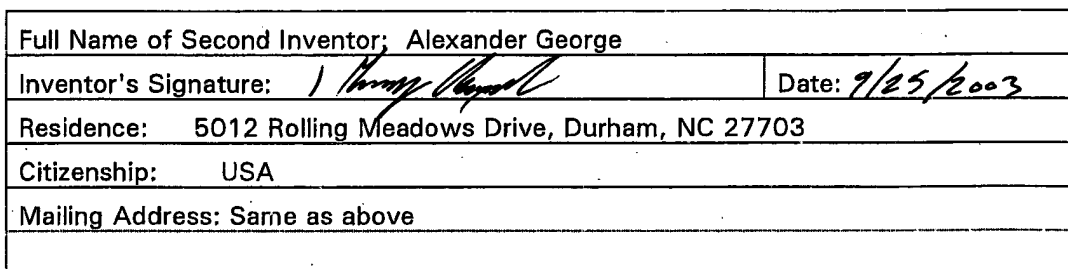 Full Name of Second Inventor; Alexander George
Inventor's Signature: Date: 9/25/2003
Residence: 5012 Rolling Meadows Drive, Durham, NC 27703
Citizenship: USA
Mailing Address: Same as above